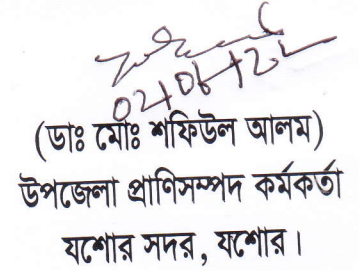 (ডাঃ মোঃ শফিউল আলম)
উপজেলা প্রাণিসম্পদ কর্মকর্তা
যশোর সদর, যশোর।